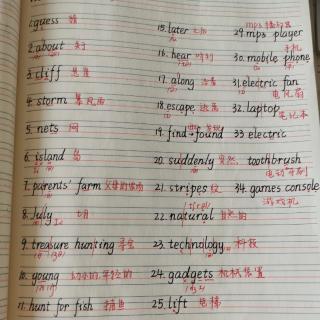 1.guess 猜
2.about 关于
3.cliff 悬崖
4.storm 暴风雨
5.nets 网
6.island 岛
7.parents' farm 父母的农场
8.July 七月
9.treasure hunting 寻宝
10.young 幼小的,年轻的
11.hunt for fish 捕鱼
15.later
16.hear 听到
17.along 沿着
18.escape 逃离
19.find→found
20.suddenly 突然
21.stripes 纹
22.natural 自然的
23.technology 科技
24.gadgets 机械装置
25.lift 电梯
29.mp3 player
30.mobile phone 手机
31.electric fan 电风扇
32.laptop 笔记本
33 electric
toothbrush
电动牙刷
34.games console
游戏机